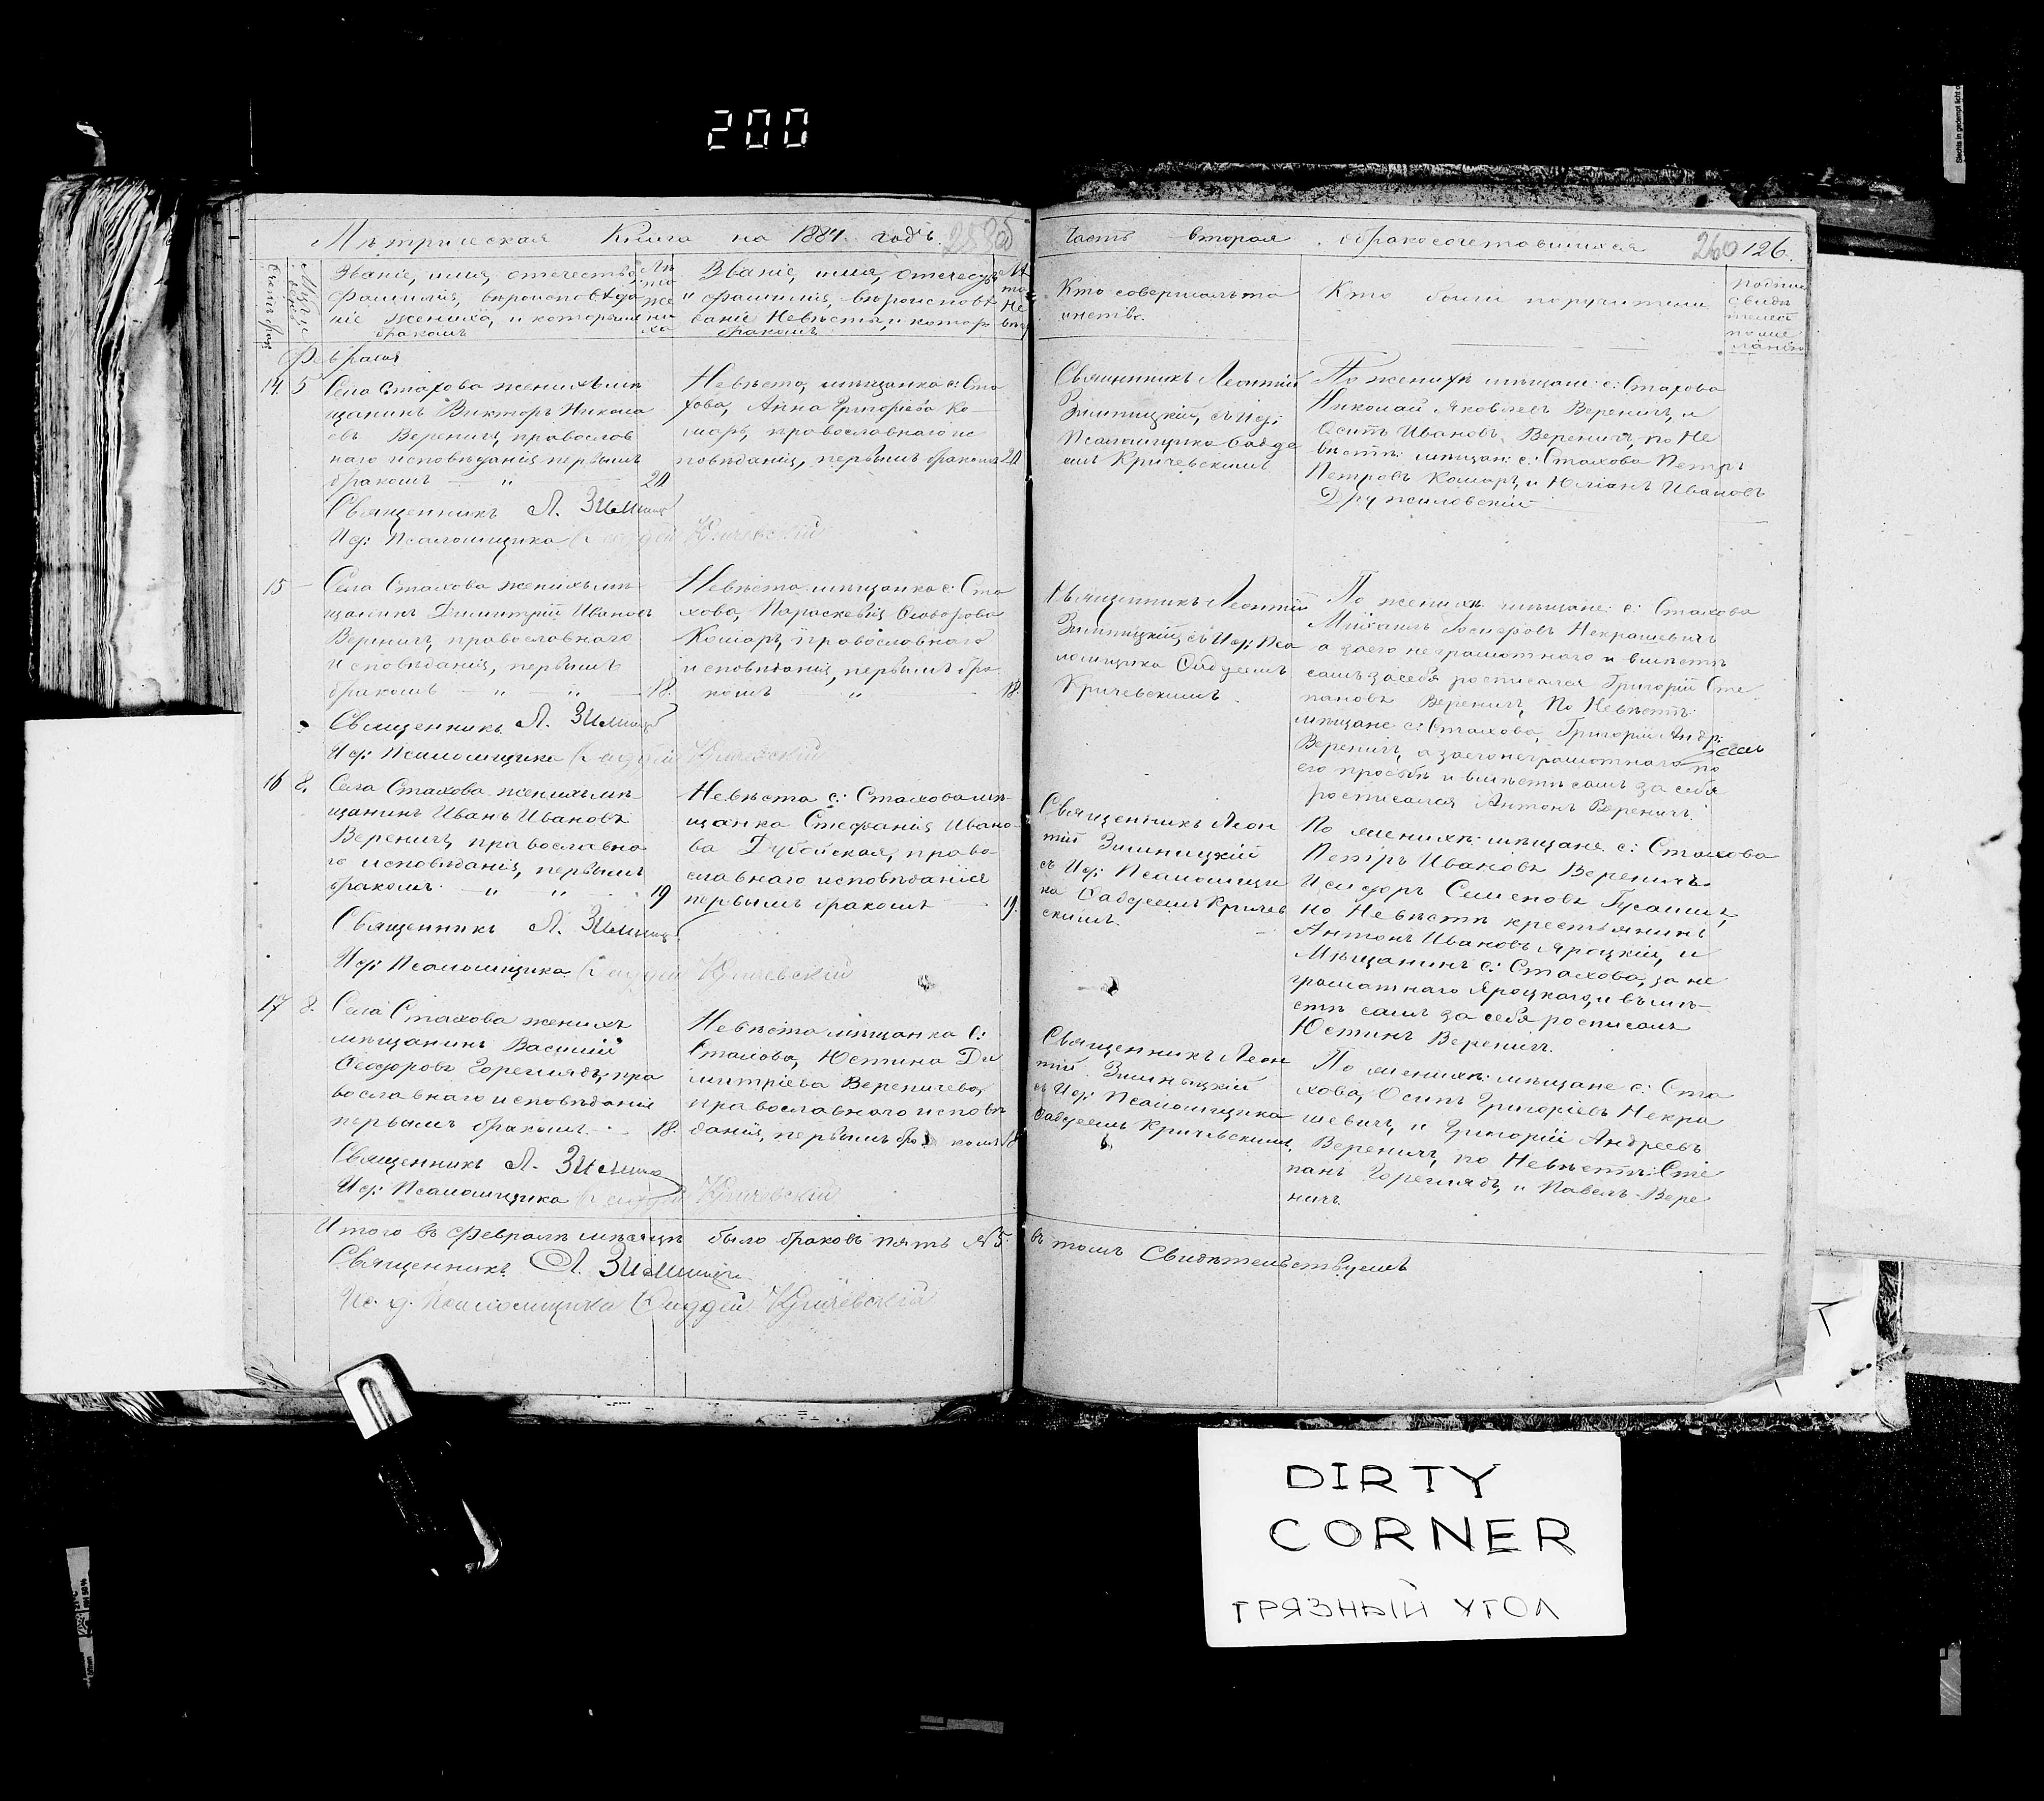 200
Метрическая Книга на 1884 годъ.
Званіе, имя, отечество,
фамилія, вѣроисповѣда
ніе жениха, и которымъ
бракомъ
Лѣ
та
же
ни
ха
Званіе, имя, отечеству
и фамилія, вѣроисповѣ
даніе Невѣсты, и котор
бракомъ
Лѣ
та
Не
вѣс
Февраля
14 5
Села Стахова женихъ мѣ
щанинъ Викторъ Никола
евъ Веренич, православ
наго исповѣданія первымъ
бракомъ — " 20
Невѣста, мѣщанка с: Ста
хова, Анна Григоріева Ко
маръ, православнаго ис
повѣданія, первымъ бракомъ 20
Священникъ Л. Зимниц
Ис: Псаломщика Фаддей Кричевскій
15 —
Села Стахова женихъ мѣ
щанинъ Димитрій Ивановъ
Веренич, православнаго
исповѣданія, первымъ
бракомъ — " — " — 18.
Невѣста мѣщанка с: Ста
хова, Параскевія Ѳеодорова
Комаръ, православнаго
исповѣданія, первымъ бра
комъ " 18.
Священникъ Л. Зимниц
Ис: Псаломщика Фаддей Кричевскій
16 8.
Села Стахова женихъ мѣ
щанинъ Иванъ Ивановъ
Веренич, православна
го исповѣданія, первымъ
бракомъ. — " " 19
Невѣста с: Стахова мѣ
щанка Стефанія Ивано
ва Дубойская, право
славнаго исповѣданія
первымъ бракомъ — 19.
Священникъ Л. Зимниц
Ис: Псаломщика Фаддей Кричевскій
17 8.
Села Стахова женихъ
мѣщанинъ Василій
Ѳеодоровъ Горегляд, пра
вославнаго исповѣданія
первымъ бракомъ. — 18.
Невѣста мѣщанка С:
Стахова, Юстина Ди
митріева Вереничева,
православнаго исповѣ
данія, первымъ бра комъ 18
Священникъ Л. Зимниц
Ис: Псаломщика Фаддей Кричевскій
Итого въ Февралѣ мѣсяцѣ было браковъ пять №5.
Священникъ Л. Зимниц
Ис. д. Псаломщика Фаддей Кричевскій
Часть вторая, о бракосочетавшихся 260 126.
Кто совершалъ та
инство.
Кто были поручители
Подпись
свидѣ
телей
по же
ланію
Священникъ Леонтій
Зимницкій, съ Ис:
Псаломщика Фадде
емъ Кричевскимъ
По женихѣ мѣщане: с: Стахова
Николай Яковлевъ Веренич, и
Осипъ Ивановъ Веренич, по Не
вѣстѣ: мѣщан: с: Стахова Петръ
Петровъ Комаръ, и Юліанъ Ивановъ
Дружиловскій
Священникъ Леонтій
Зимницкій, съ Ис: Пса
ломщика Фаддеемъ
Кричевскимъ.
По женихѣ мѣщане: с: Стахова
Михаилъ Некрашевичъ
а за его неграмотнаго и вмѣстѣ
самъ за себя росписался Григорій Сте
пановъ Веренич, По Невѣстѣ:
мѣщане с: Стахова, Григорій Андр:
Веренич, а за его неграмотнаго по
его просьбѣ и вмѣстѣ самъ за себя
росписался Антонъ Веренич.
Священникъ Леон
тій Зимницкій
съ Ис: Псаломщи
ка Фаддеемъ Кричев
скимъ.
По женихѣ: мѣщане с: Стахова
Петръ Ивановъ Вереничъ
Исидоръ Семеновъ
по Невѣстѣ крестьянинъ
Антонъ Ивановъ Яроцкій, и
Мѣщанинъ с: Стахова, за не
грамотнаго Яроцкаго, и вмѣ—
стѣ самъ за себя росписалъ
Юстинъ Веренич.
Священникъ Леон
тій Зимницкій
съ Ис: Псаломщика
Фаддеемъ Кричевскимъ.
По женихѣ: мѣщане с: Ста
хова, Осипъ Григоріевъ Некра
шевич, и Григорій Андреевъ
Веренич, по Невѣстѣ: Сте
панъ Горегляд, и Павелъ Вере
нич.
въ томъ Свидѣтельствуемъ
DIRTY
CORNER
ГРЯЗНЫЙ УГОЛ